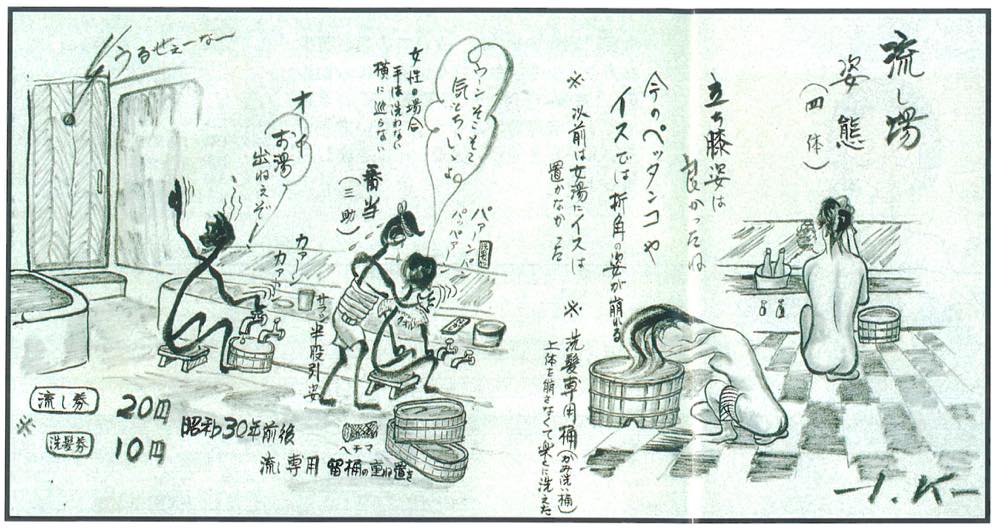 流し場
姿態
(四体)
立ち膝姿は
良かったね
今のペッタンコや
イスでは折角の姿が崩れる
※ 以前は女湯にイスは
置かなかった
※ 洗髪専用桶(かみ洗い桶)
上体を崩さなくて楽に洗えた
ウンそこそこ
気もちいゝよ
女性の場合
手は洗わない
横に巡らない
番当
(三助)
パァーンパ
パッパァー
うるせぇーなー
オーイ
お湯
出ねえぞー
カァーン
カァーン
サラシ半股引姿
流し券 20円
※
洗髪券 10円
昭和30年前後
流し専用 留桶の重ね置き
ヘチマ
T.K